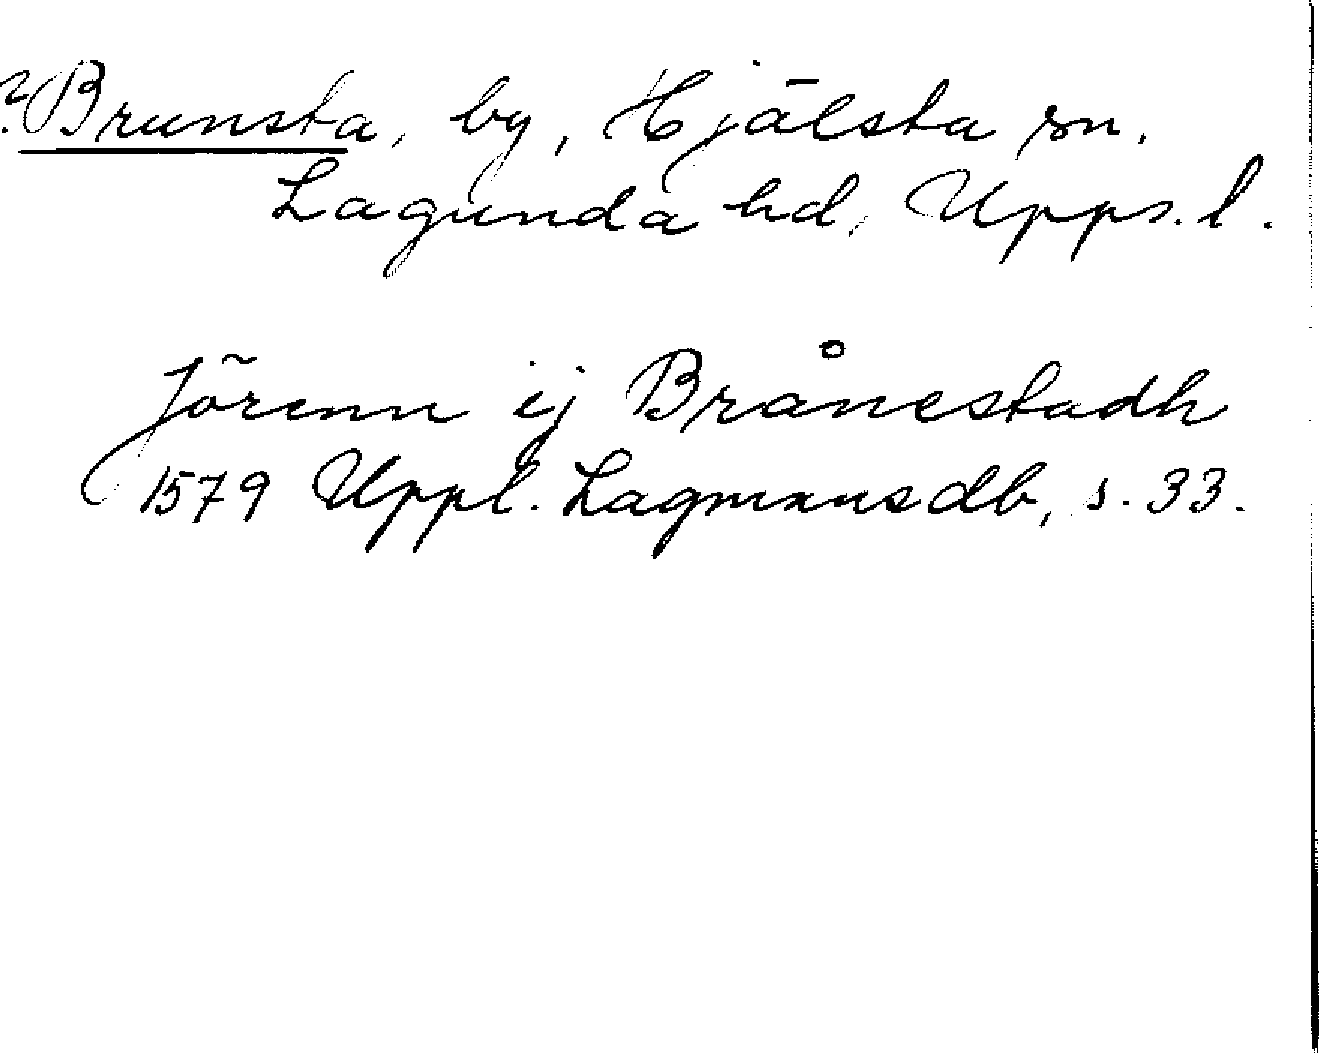 ? Brunsta, by, Hjälsta sn.
Lagunda hd, Upps. l.
Jörenn ij Brånestadh
1579 Uppl. Lagmansdb, s. 33.